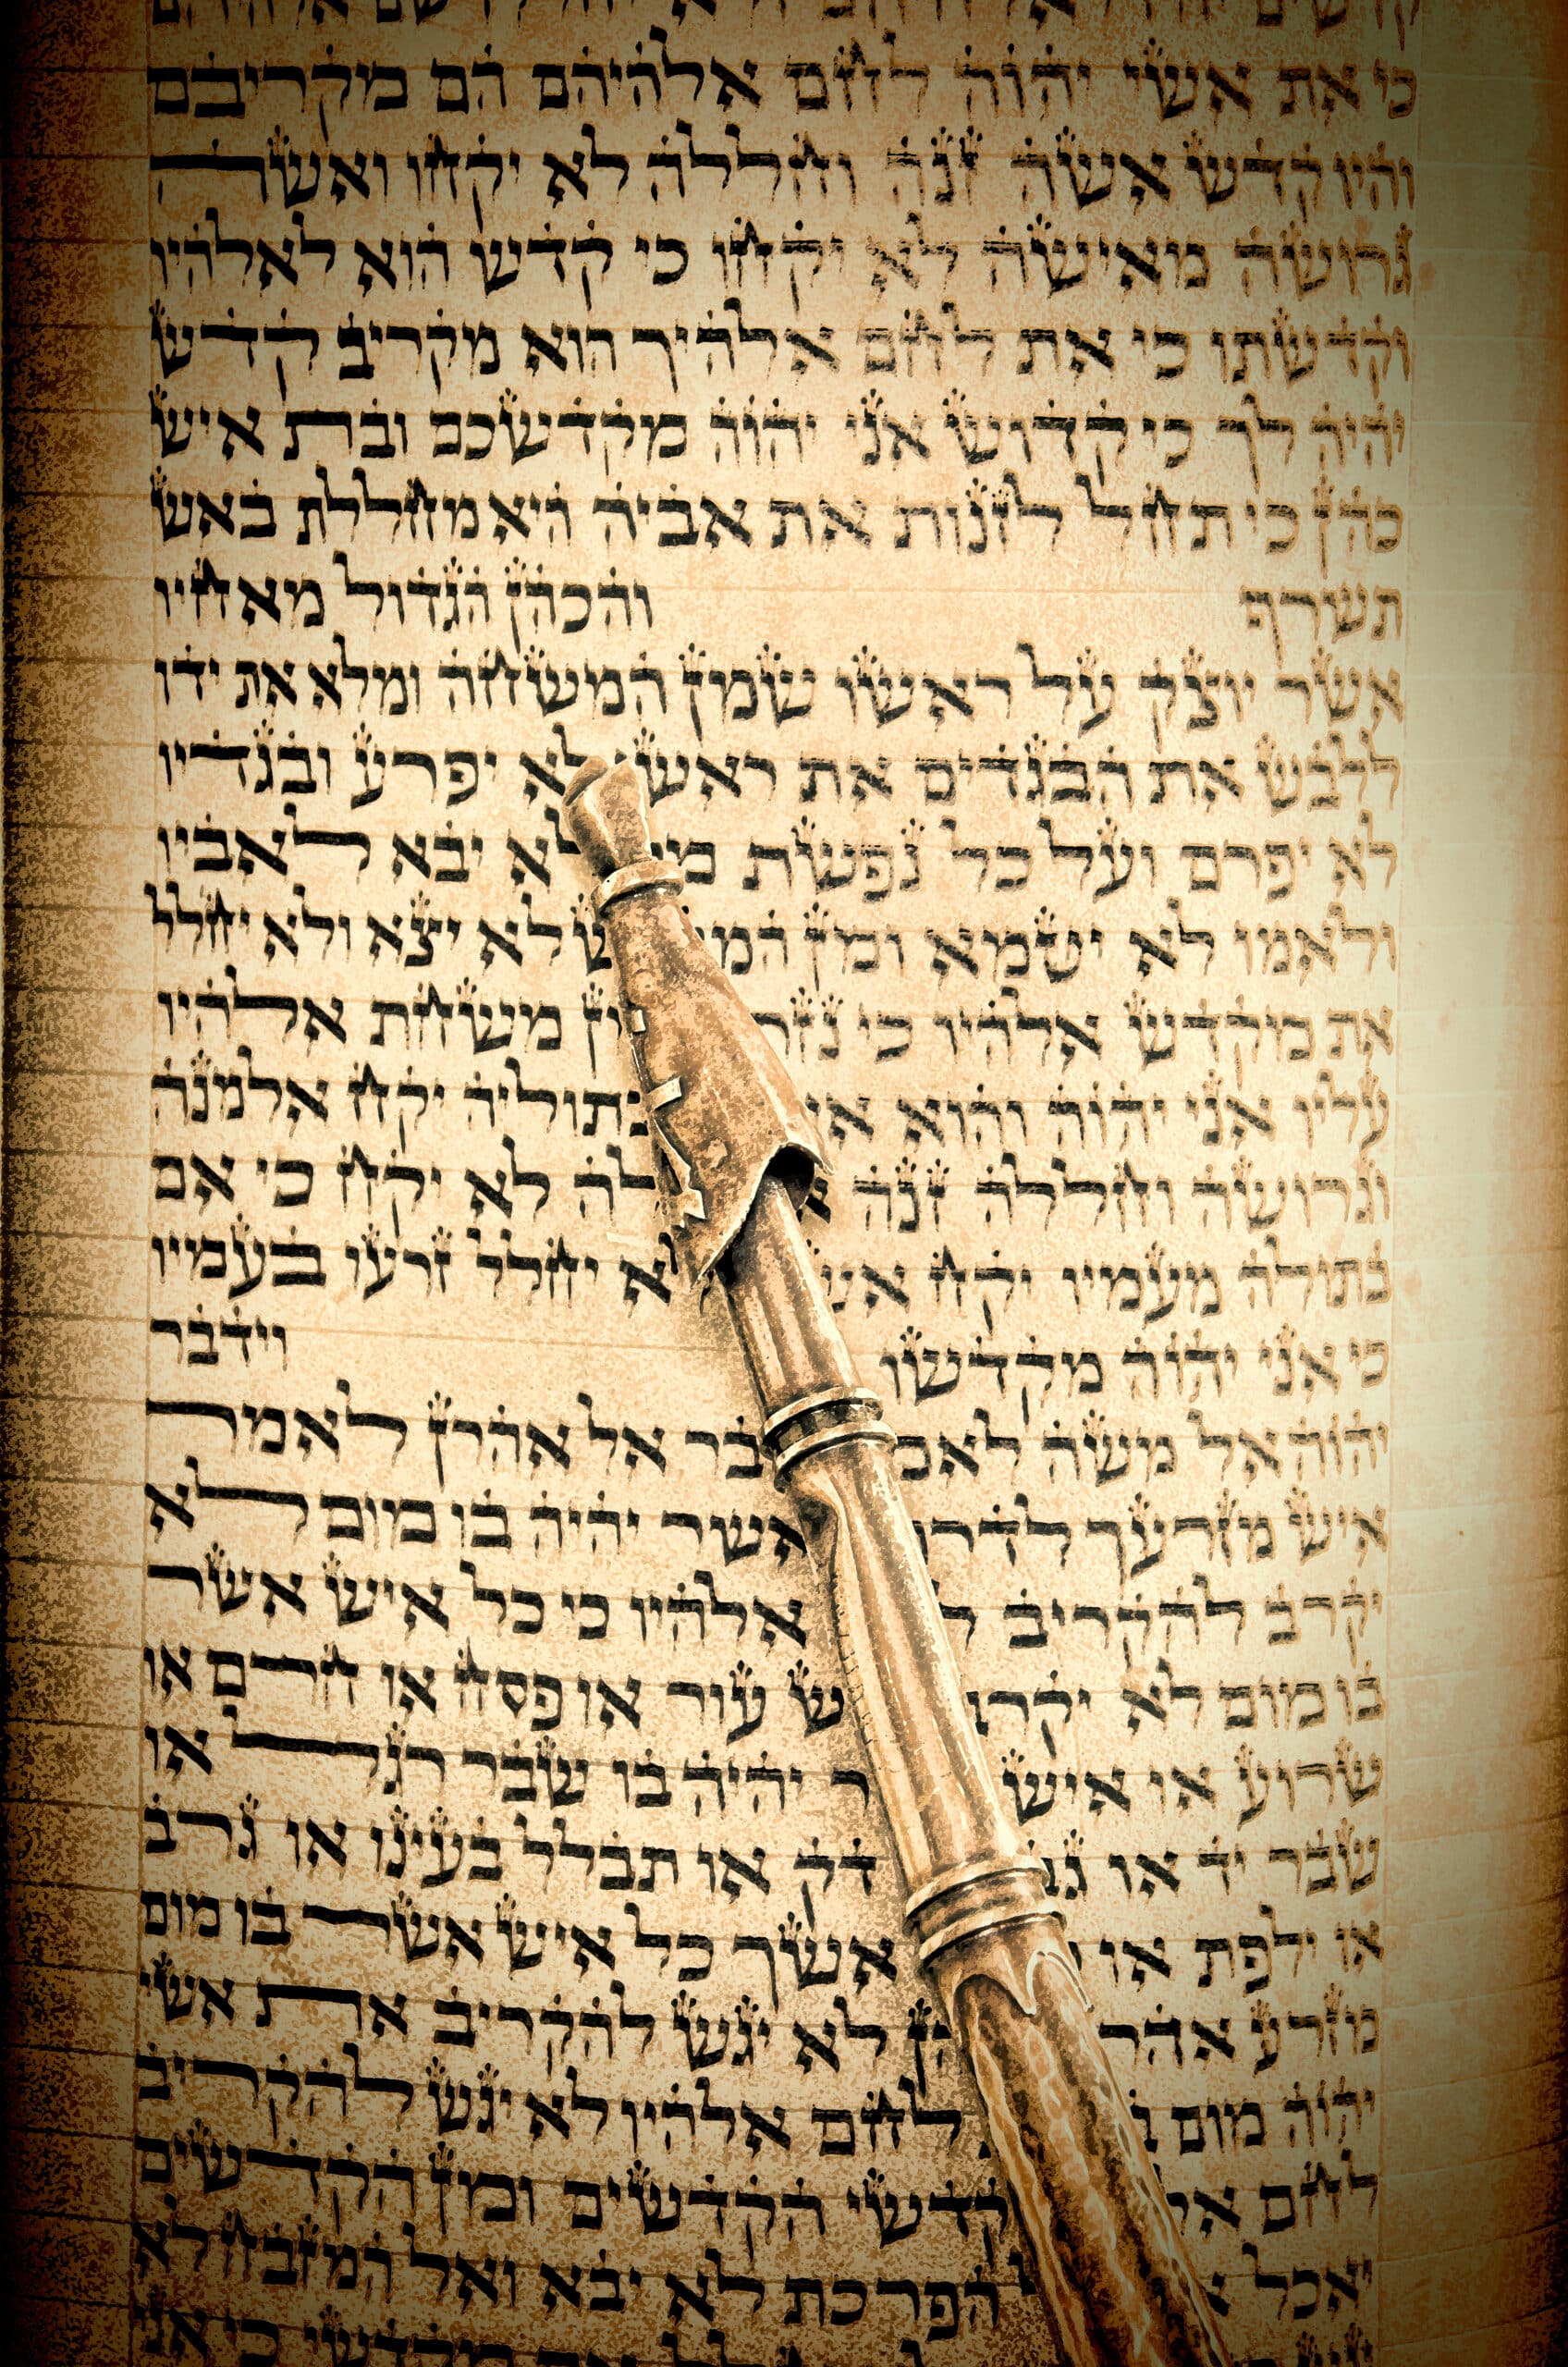 כי את אשי יהוה לחם אלהיהם הם מקריבם
והיו קדש אשה זנה וחללה לא יקחו ואשה
גרושה מאישה לא יקחו כי קדש הוא לאלהיו
וקדשתו כי את לחם אלהיך הוא מקריב קדש
יהיה לך כי קדוש אני יהוה מקדשכם ובת איש
כהן כי תחל לזנות את אביה היא מחללת באש
תשרף והכהן הגדול מאחיו
אשר יוצק על ראשו שמן המשחה ומלא את ידו
ללבש את הבגדים את לא יפרע ובגדיו
לא יפרם ועל כל נפשת לא יבא לאביו
ולאמו לא יטמא ומן לא יצא ולא יחלל
את מקדש אלהיו כי משחת אלהיו
עליו אני יהוה והוא יקח אלמנה
וגרושה וחללה זנה לא יקח כי אם
בתולה מעמיו יקח יחלל זרעו בעמיו
כי אני יהוה מקדשו וידבר
יהוה אל משה אל אהרן לאמר
איש מזרעך אשר יהיה בו מום לא
יקרב להקריב אלהיו כי כל איש אשר
בו מום לא עור או פסח או חרם או
שרוע או איש יהיה בו שבר רגל או
שבר יד או דק או תבלל בעינו או גרב
או ילפת או אשך כל איש אשר בו מום
מזרע לא יגש להקריב את אשי
יהוה מום לחם אלהיו לא יגש להקריב
לחם קדשי הקדשים ומן הקדשים
יאכל הפרכת לא יבא ואל המזבח לא